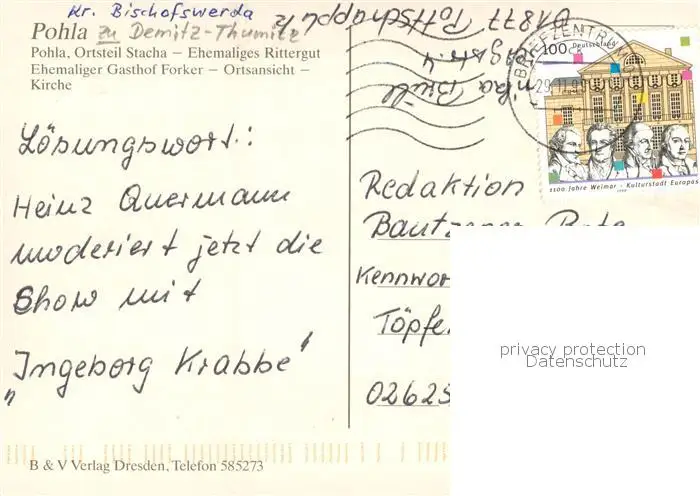 Kr. Bischofswerda
Pohla zu Demitz-Thumitz
Pohla, Ortsteil Stacha – Ehemaliges Rittergut
Ehemaliger Gasthof Forker – Ortsansicht –
Kirche
Lösungswort:
Heinz Quermann
moderiert jetzt die
Show mit
"Ingeborg Krabbe"
B & V Verlag Dresden, Telefon 585273
01877 Pottschappl
BRIEFZENTRUM
29.11.99
100 Deutschland
1100 Jahre Weimar · Kulturstadt Europas
1999
Redaktion
Bautzener Bote
Kennwor
Töpfe
02625
privacy protection
Datenschutz